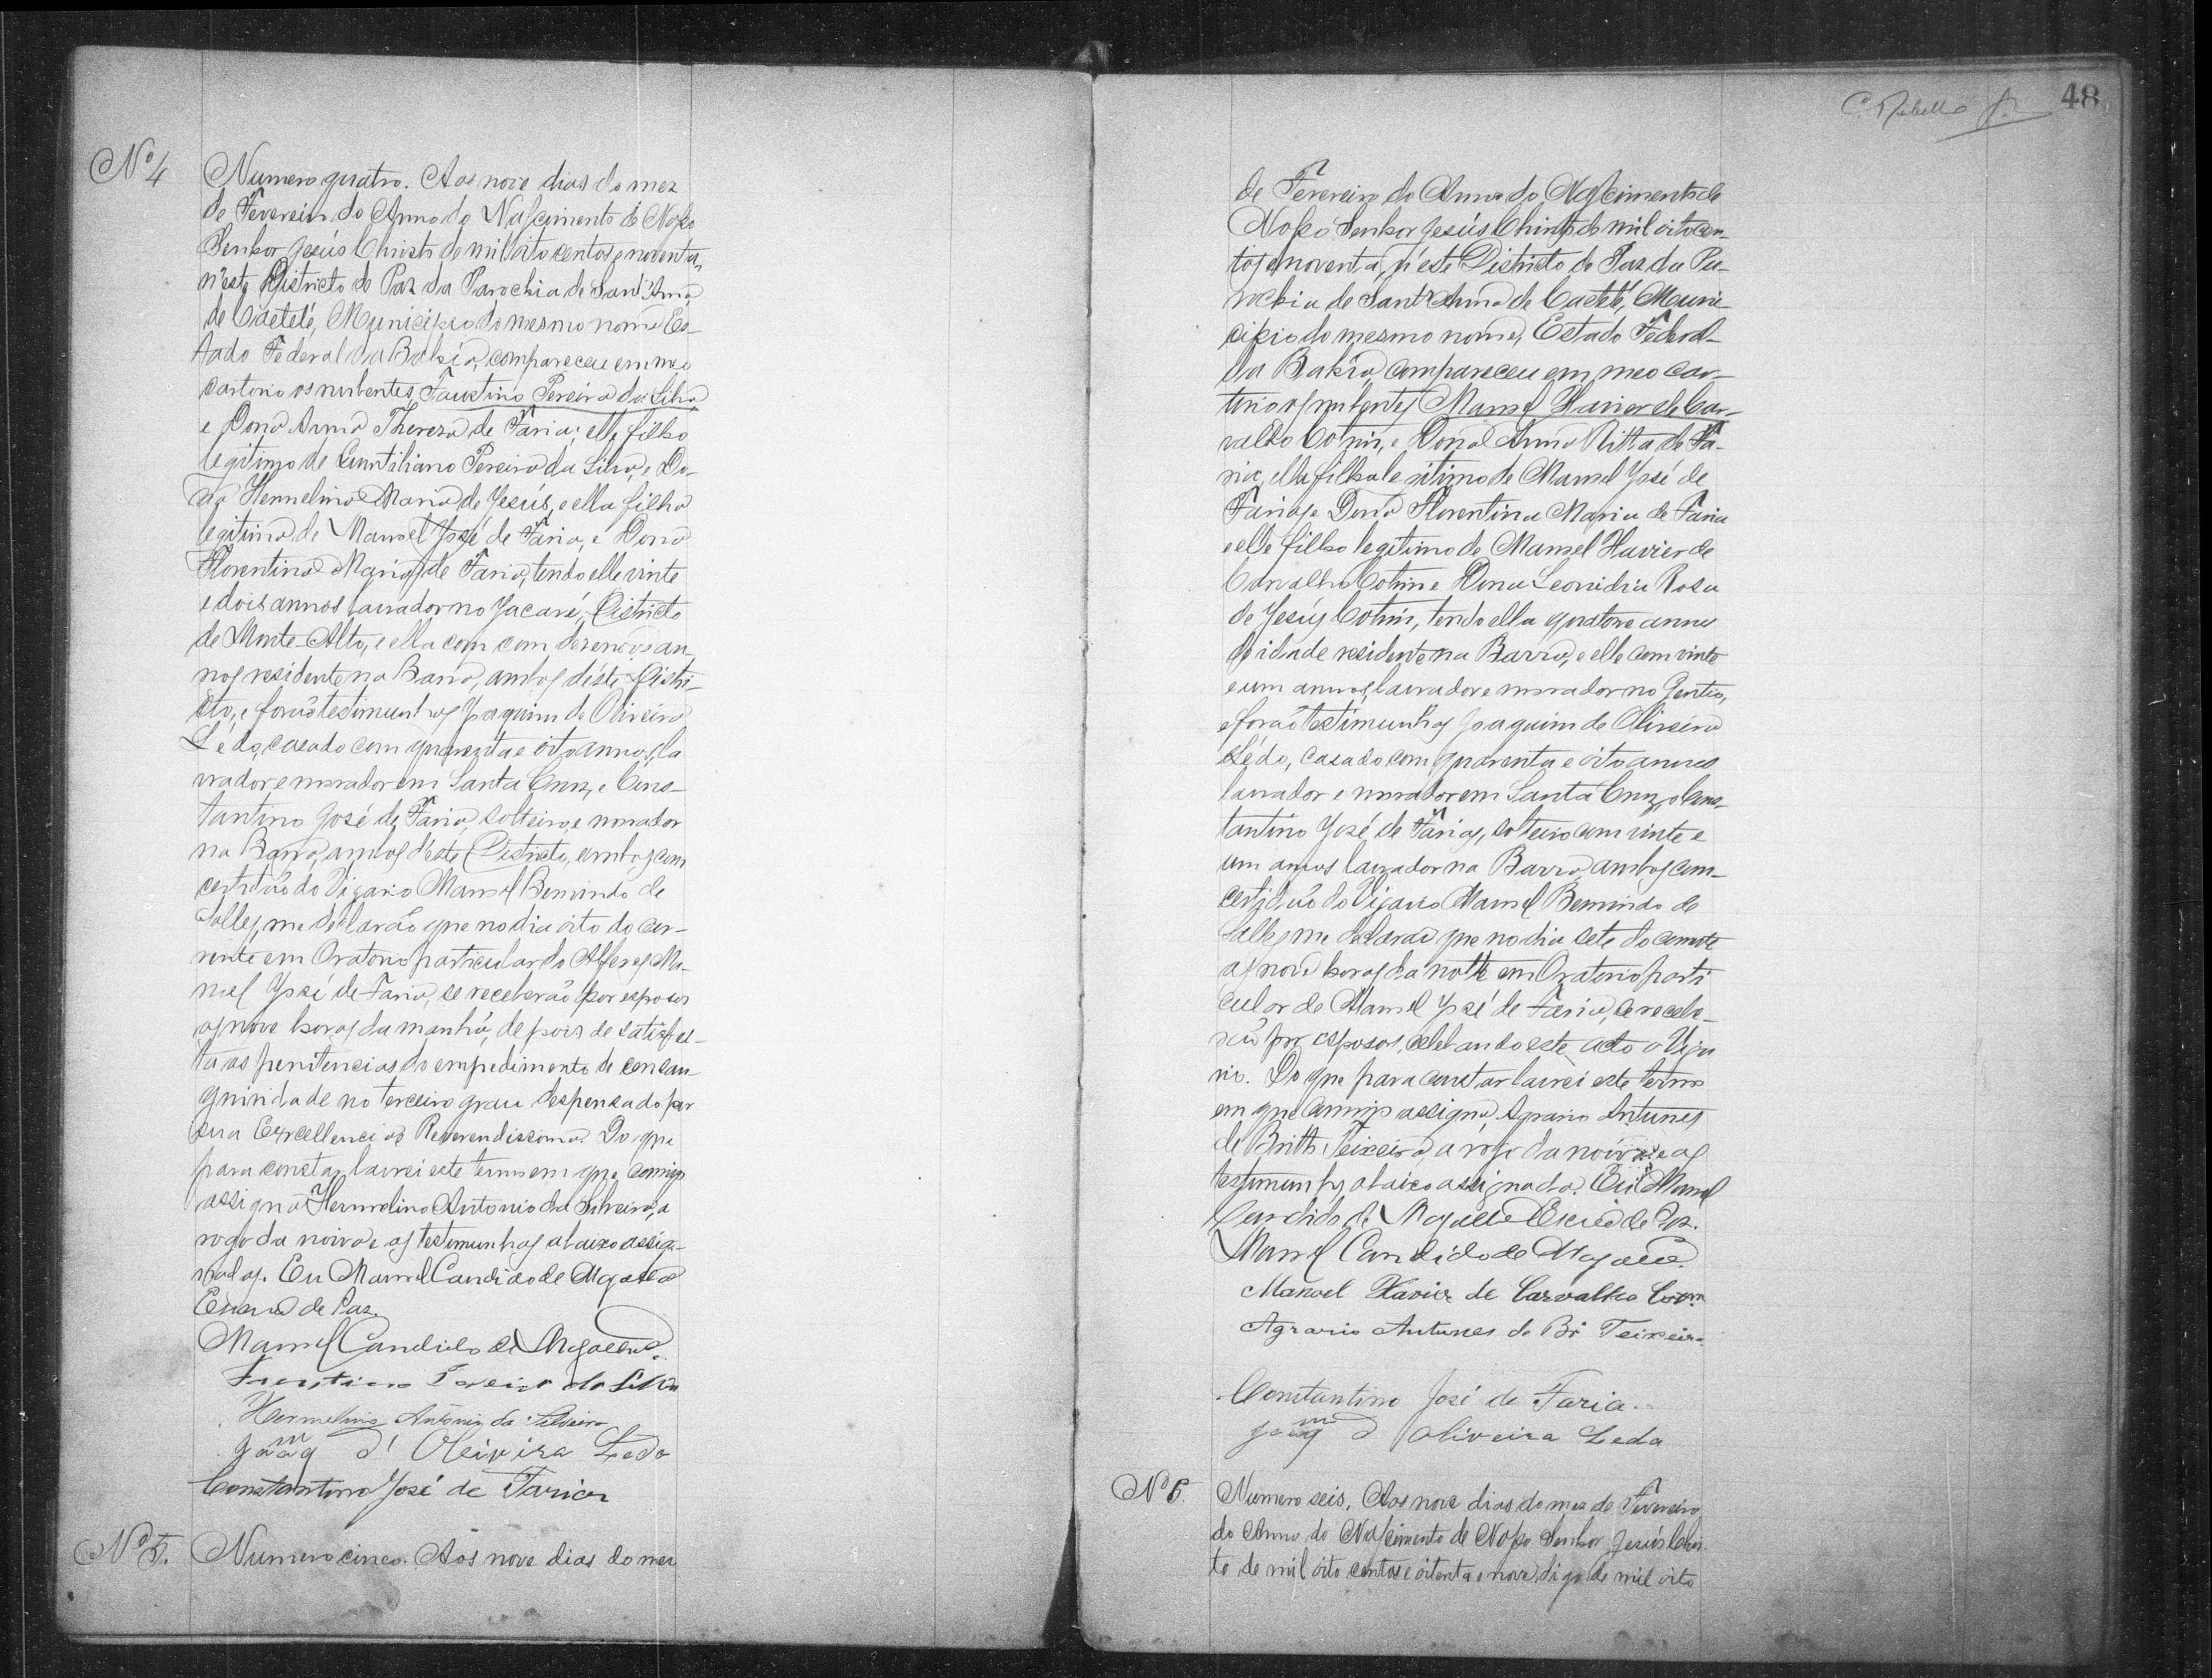 Nº 4
Numero quatro. Aos nove dias do mez
de Fevereiro do Anno do Nascimento de Nosso
Senhor Jesús Christo de mil oito centos e noventa,
n'este Districto de Paz da Parochia de Sant'Anna
de Caeteté, Municipio do mesmo nome Es-
tado Federal da Bahia, compareceu em meo
cartorio os nubentes, Faustino Pereira da Silva
e Dona Anna Thereza de Faria; elle filho
legitimo de Pereira da Silva, e Do-
na Hermelina Maria de Jesús, e ella filha
legitima de Manoel José de Faria, e Dona
Florentina Maria de Faria, tendo elle vinte
e dois annos lavrador no Jacaré, Districto
de Monte-Alto, e ella com com desenove an-
nos residente na Barra, ambos déste Distri-
cto, e forão testimunhas Joaquim de Oliveira
Lédo, casado com quarenta e oito annos, la
vrador e morador em Santa Cruz, e Cons-
tantino José de Faria, solteiro, e morador
na Barra, ambos d'este Districto, ambos com
certidão do Vigario Manoel Bemindo de
Salles, me declarão que no dia oito do cor-
rente em Oratorio particular do Alferes Ma-
noel José de Faria, se receberão por esposos
as nove horas da manhã, depois de satisfei-
ta as penitencias do empedimento de consan-
guinidade no terceiro grau despensado por
sua Excellencia Reverendissima. Do que
para constar lavrei este termo em que comigo
assigna Hermelino Antonio da Silveira, a
rogo da noiva e as testemunhas abaixo assig-
nadas. Eu Manoel Candido de
Escrivão de Paz.
Manoel Candido de
Faustino Pereira da Silva
Hermelino Antonio da Silveira
Joaqm d' Oliveira Ledo
Constantino José de Faria
Nº 5.
Numero cinco. Aos nove dias do mez
48
de Fevereiro do Anno do Nascimento de
Nosso Senhor Jesús Christo de mil oito cen-
tos e noventa, n'éste Districto de Paz da Pa-
rochia de Sant'Anna de Caeteté, Muni-
cipio do mesmo nome, Estado Federal
da Bahia, compareceu em meo car-
torio os nubentes Manoel Xavier de Car-
valho Cotrim, e Dona Anna Ritta de Fa-
ria, ella filha legitima de Manoel José de
Faria, e Dona Florentina Maria de Faria
e elle filho legitimo de Manoel Xavier de
Carvalho Cotrim e Dona Leonidia Rosa
de Jesús Cotrim, tendo ella quatorze annos
de idade residente na Barra, e elle com vinte
e um annos, lavrador e morador no Gentio,
e forão testimunhas Joaquim de Oliveira
Lédo, casado com quarenta e oito annos
lavrador e morador em Santa Cruz, e Cons-
tantino José de Faria, solteiro com vinte e
um annos lavrador na Barra, ambos com
certidão do Vigario Manoel Bemindo de
Salles, me declarão que no dia sete do corrente
as nove horas da noite em Oratorio parti
cular de Manoel José de Faria, se recebe-
rão por esposos, celebrando este acto o Viga
rio. Do que para constar lavrei este termo
em que comigo assigna, Agrario Antunes
de Britto Teixeira, a rogo da noiva e as
testemunhas abaixo assignada. Eu Manoel
Candido de Escrivão de Paz.
Manoel Candido de
Manoel Xavier de Carvalho Cotrm
Agrario Antunes de Bº Teixeira
Constantino José de Faria.
Joaqm d Oliveira Ledo
Nº 6.
Numero seis. Aos nove dias do mez de Fevereiro
do Anno do Nascimento de Nosso Senhor Jesús Chris-
to de mil oito centos e oitenta e nove digo de mil oito